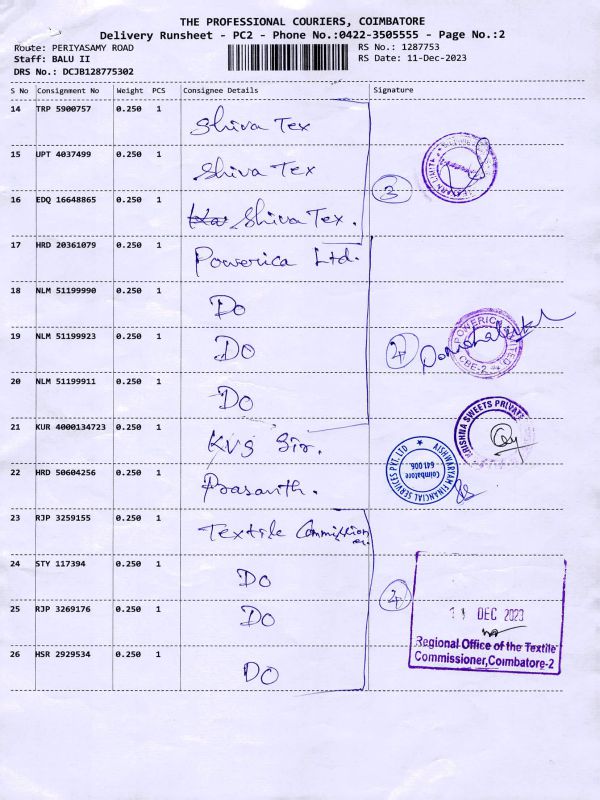 THE PROFESSIONAL COURIERS, COIMBATORE
Delivery Runsheet - PC2 - Phone No.:0422-3505555 - Page No.:2
Route: PERIYASAMY ROAD RS No.: 1287753
Staff: BALU II RS Date: 11-Dec-2023
DRS No.: DCJB128775302
S No Consignment No Weight PCS Consignee Details Signature
14 TRP 5900757 0.250 1 Shiva Tex
15 UPT 4037499 0.250 1 Shiva Tex
3
16 EDQ 16648865 0.250 1 Shiva Tex.
17 HRD 20361079 0.250 1 Powerica Ltd.
18 NLM 51199990 0.250 1 Do
19 NLM 51199923 0.250 1 Do
4
POWERICA LIMITED
CBE-2
20 NLM 51199911 0.250 1 Do
21 KUR 4000134723 0.250 1 KVS Sir.
KRISHNA SWEETS PRIVATE
22 HRD 50604256 0.250 1 Prasanth.
AISHWARYAM FINANCIAL SERVICES PVT. LTD
Coimbatore
641 006.
23 RJP 3259155 0.250 1 Textile Commission
er.
24 STY 117394 0.250 1 Do
4
25 RJP 3269176 0.250 1 Do
11 DEC 2023
Regional Office of the Textile
Commissioner,Coimbatore-2
26 HSR 2929534 0.250 1 Do